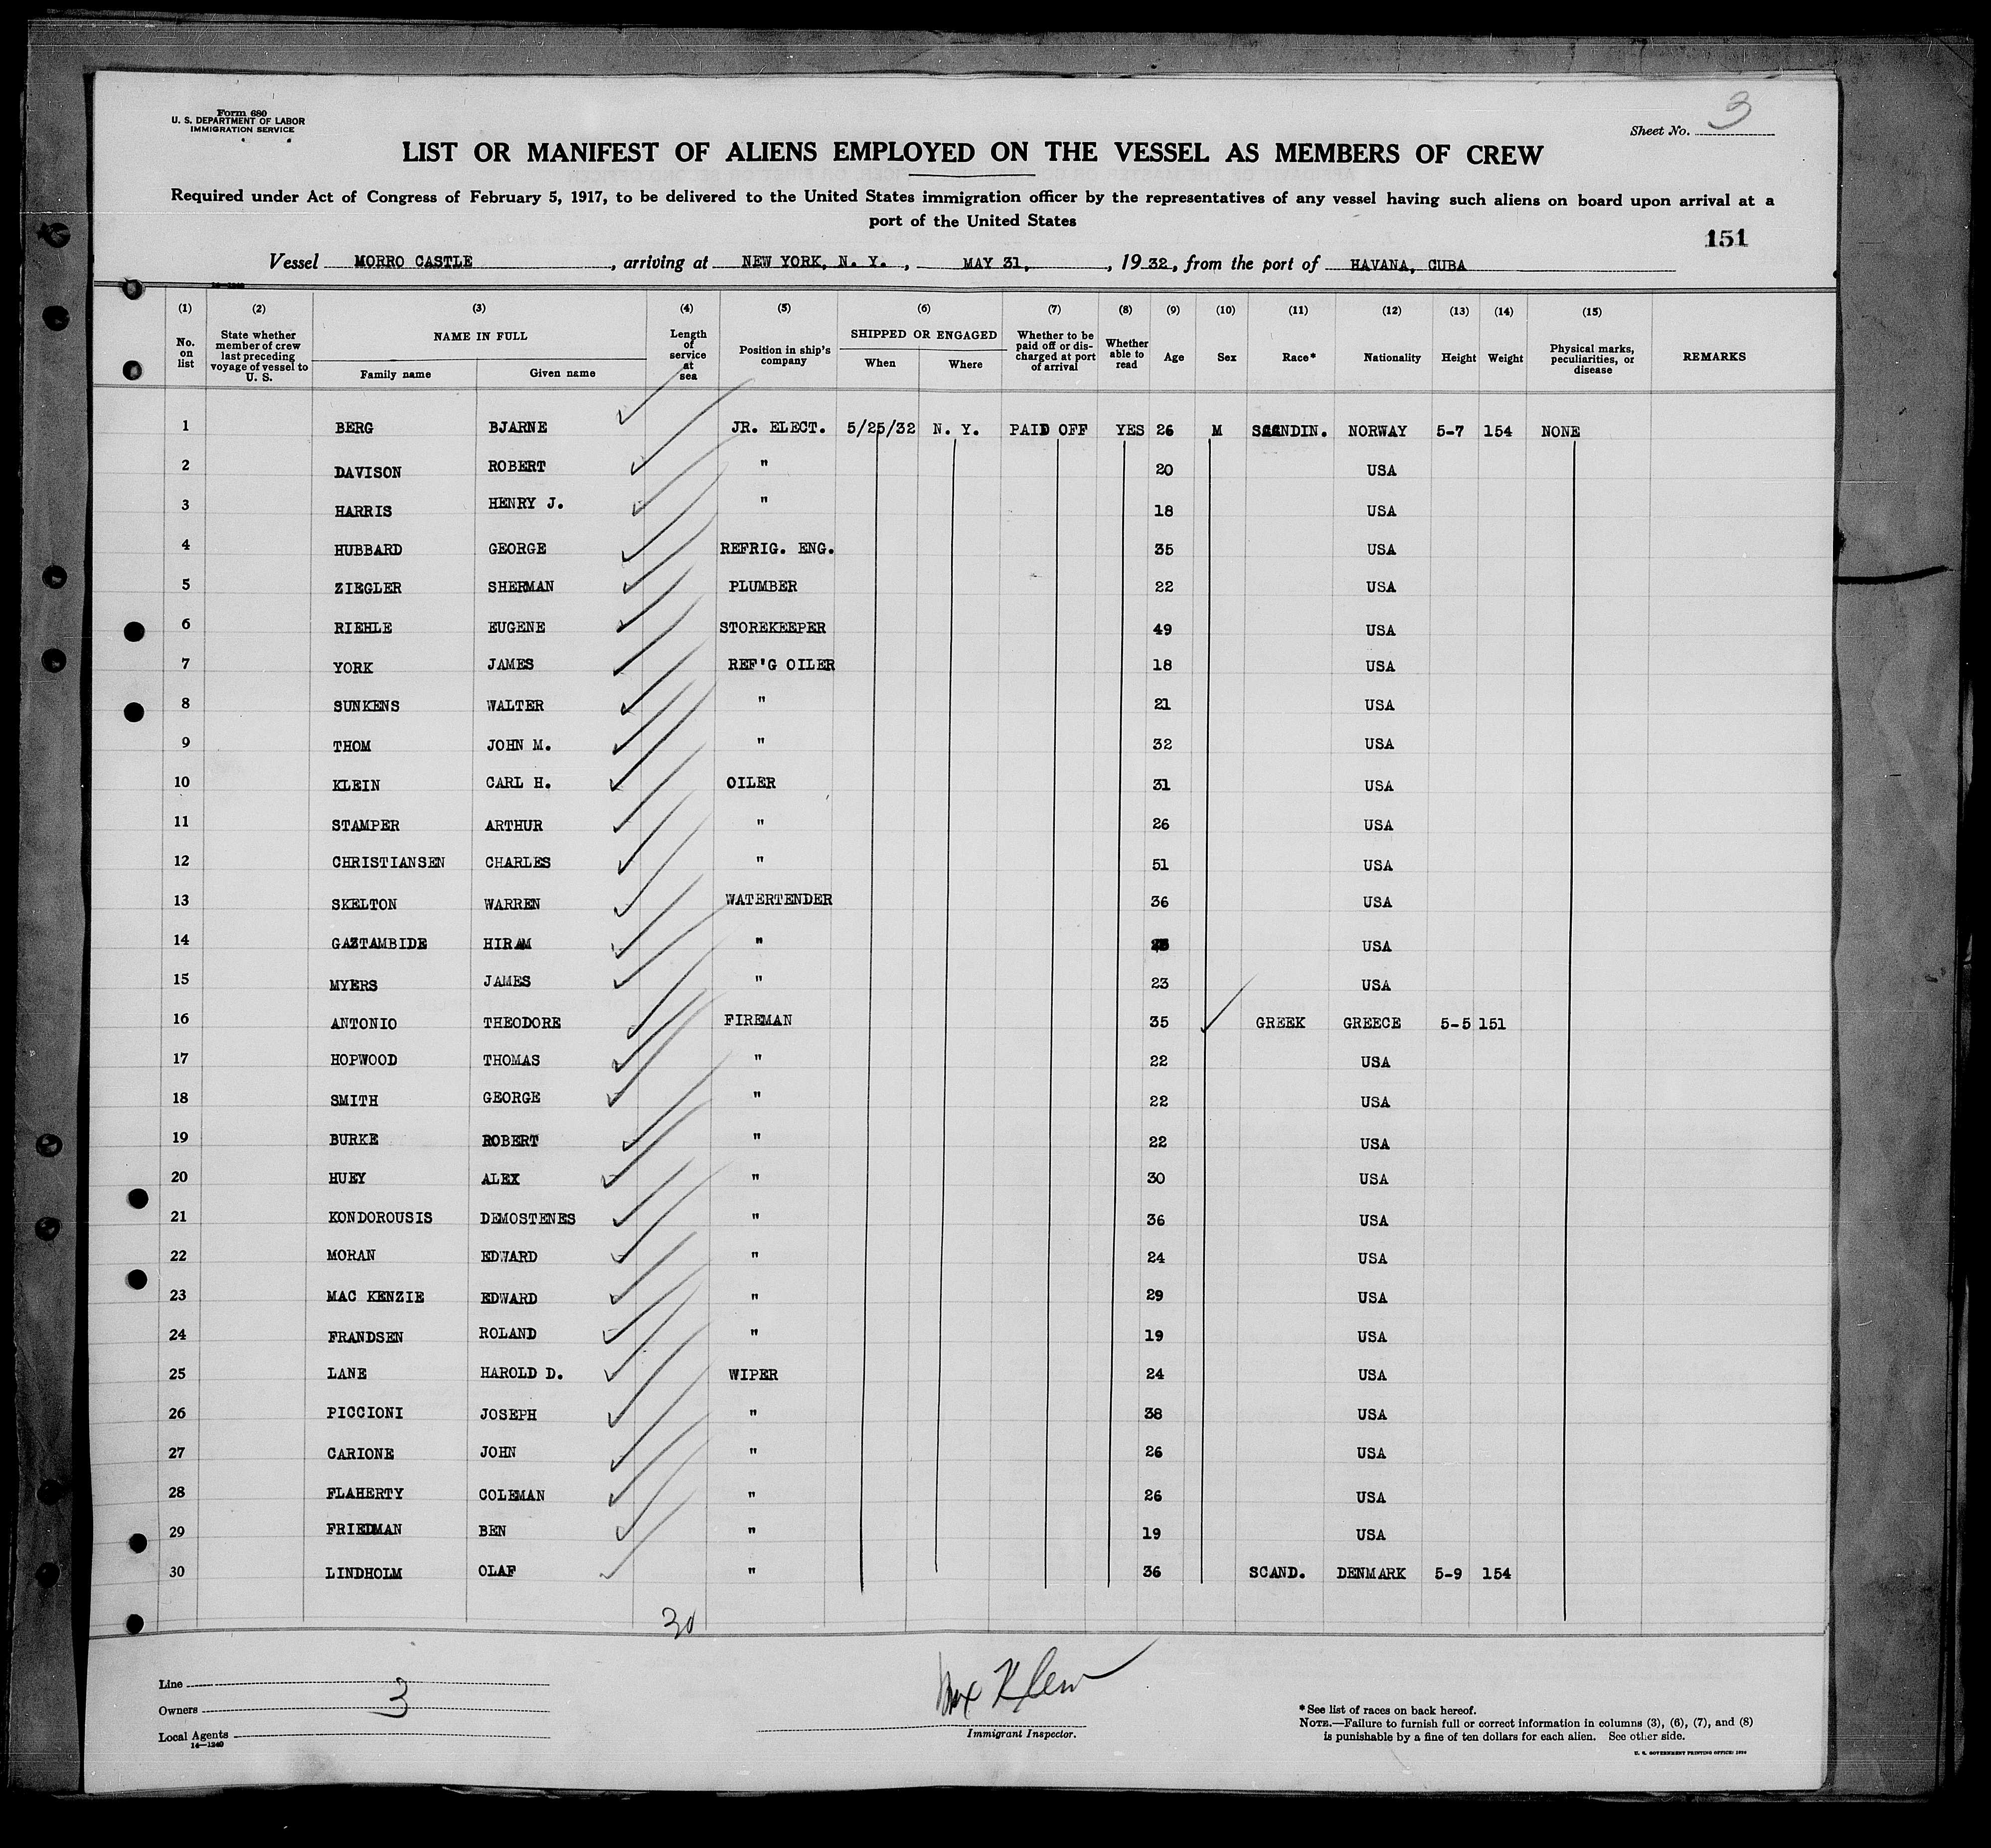 Form 680
U. S. DEPARTMENT OF LABOR
IMMIGRATION SERVICE
Sheet No. 3
LIST OR MANIFEST OF ALIENS EMPLOYED ON THE VESSEL AS MEMBERS OF CREW
Required under Act of Congress of February 5, 1917, to be delivered to the United States immigration officer by the representatives of any vessel having such aliens on board upon arrival at a
port of the United States
151
Vessel MORRO CASTLE, arriving at NEW YORK, N. Y., MAY 31, 1932, from the port of HAVANA, CUBA
14-1240
(1) (2) (3) (4) (5) (6) (7) (8) (9) (10) (11) (12) (13) (14) (15)
No. on list | State whether member of crew last preceding voyage of vessel to U. S. | NAME IN FULL | Family name | Given name | Length of service at sea | Position in ship's company | SHIPPED OR ENGAGED | When | Where | Whether to be paid off or discharged at port of arrival | Whether able to read | Age | Sex | Race* | Nationality | Height | Weight | Physical marks, peculiarities, or disease | REMARKS
1 BERG BJARNE JR. ELECT. 5/25/32 N. Y. PAID OFF YES 26 M SCANDIN. NORWAY 5-7 154 NONE
2 DAVISON ROBERT " 20 USA
3 HARRIS HENRY J. " 18 USA
4 HUBBARD GEORGE REFRIG. ENG. 35 USA
5 ZIEGLER SHERMAN PLUMBER 22 USA
6 RIEHLE EUGENE STOREKEEPER 49 USA
7 YORK JAMES REF'G OILER 18 USA
8 SUNKENS WALTER " 21 USA
9 THOM JOHN M. " 32 USA
10 KLEIN CARL H. OILER 31 USA
11 STAMPER ARTHUR " 26 USA
12 CHRISTIANSEN CHARLES " 51 USA
13 SKELTON WARREN WATERTENDER 36 USA
14 GAZTAMBIDE HIRAM " USA
15 MYERS JAMES " 23 USA
16 ANTONIO THEODORE FIREMAN 35 GREEK GREECE 5-5 151
17 HOPWOOD THOMAS " 22 USA
18 SMITH GEORGE " 22 USA
19 BURKE ROBERT " 22 USA
20 HUEY ALEX " 30 USA
21 KONDOROUSIS DEMOSTENES " 36 USA
22 MORAN EDWARD " 24 USA
23 MAC KENZIE EDWARD " 29 USA
24 FRANDSEN ROLAND " 19 USA
25 LANE HAROLD D. WIPER 24 USA
26 PICCIONI JOSEPH " 38 USA
27 CARIONE JOHN " 26 USA
28 FLAHERTY COLEMAN " 26 USA
29 FRIEDMAN BEN " 19 USA
30 LINDHOLM OLAF " 36 SCAND. DENMARK 5-9 154
30
Line
Owners 3
Local Agents
14-1240
Max Klein
Immigrant Inspector.
* See list of races on back hereof.
NOTE.—Failure to furnish full or correct information in columns (3), (6), (7), and (8)
is punishable by a fine of ten dollars for each alien. See other side.
U. S. GOVERNMENT PRINTING OFFICE: